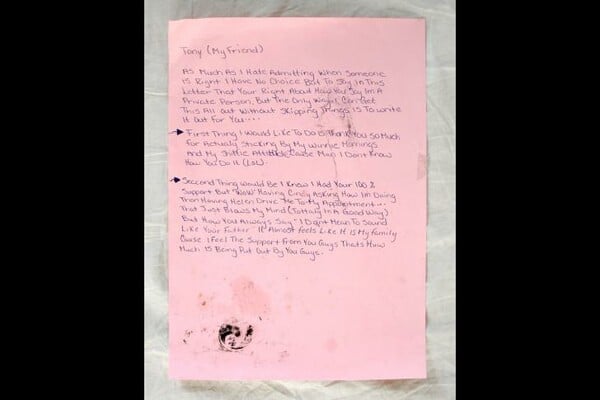 Tony (My Friend)
As Much As I Hate Admitting When Someone
Is Right I Have No Choice But To Say In This
Letter That Your Right About How You Say Im A
Private Person, But The Only Way I Can Get
This All Out Without Skipping Things Is To Write
It Out For You....
First Thing I Would Like To Do Is Thank You So Much
For Actualy Sticking By My Winnie Mornings
And My Shittie Attitude, Cause Man I Dont Know
How You Do It (LoL).
Seccond Thing Would Be I Knew I Had Your 100%
Support But "WoW" Having Cindy Asking How Im Doing
Then Having Helen Drive Me To My Appointment...
That Just Blows My Mind (Totaly In A Good Way)
But How You Always Say "I Dont Mean To Sound
Like Your Father" It Almost feels Like It Is My family
Cause I Feel The Support From You Guys Thats How
Much Is Being Put Out By You Guys.